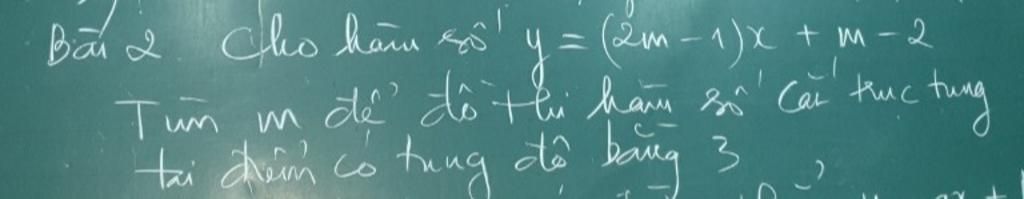 Bài 2 Cho hàm số y = (2m - 1)x + m - 2
Tìm m để đồ thị hàm số cắt trục tung
tại điểm có tung độ bằng 3